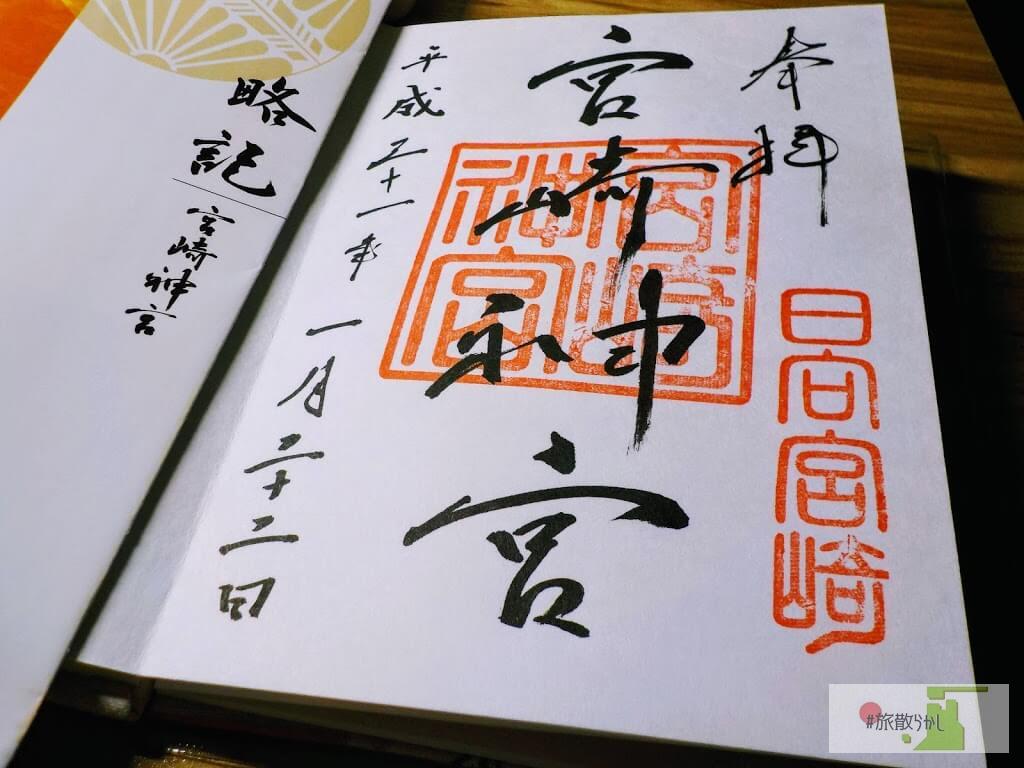 奉拝
日向宮崎
宮崎神宮
宮崎神宮
平成三十一年一月二十二日
略記
宮崎神宮
#旅散らかし